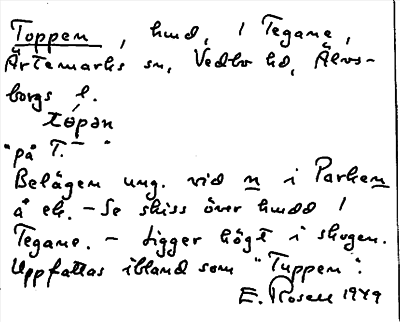 Toppen, hmd, i Tegane,
Ärtemarks sn, Vedbo hd, Älvs-
borgs l.
tópən
"på T."
Belägen ung. vid n i Parken
å ek. - Se skiss över hmdd i
Tegane. - Ligger högt i skogen.
Uppfattas ibland som "Tuppen".
E. Rosell 1949